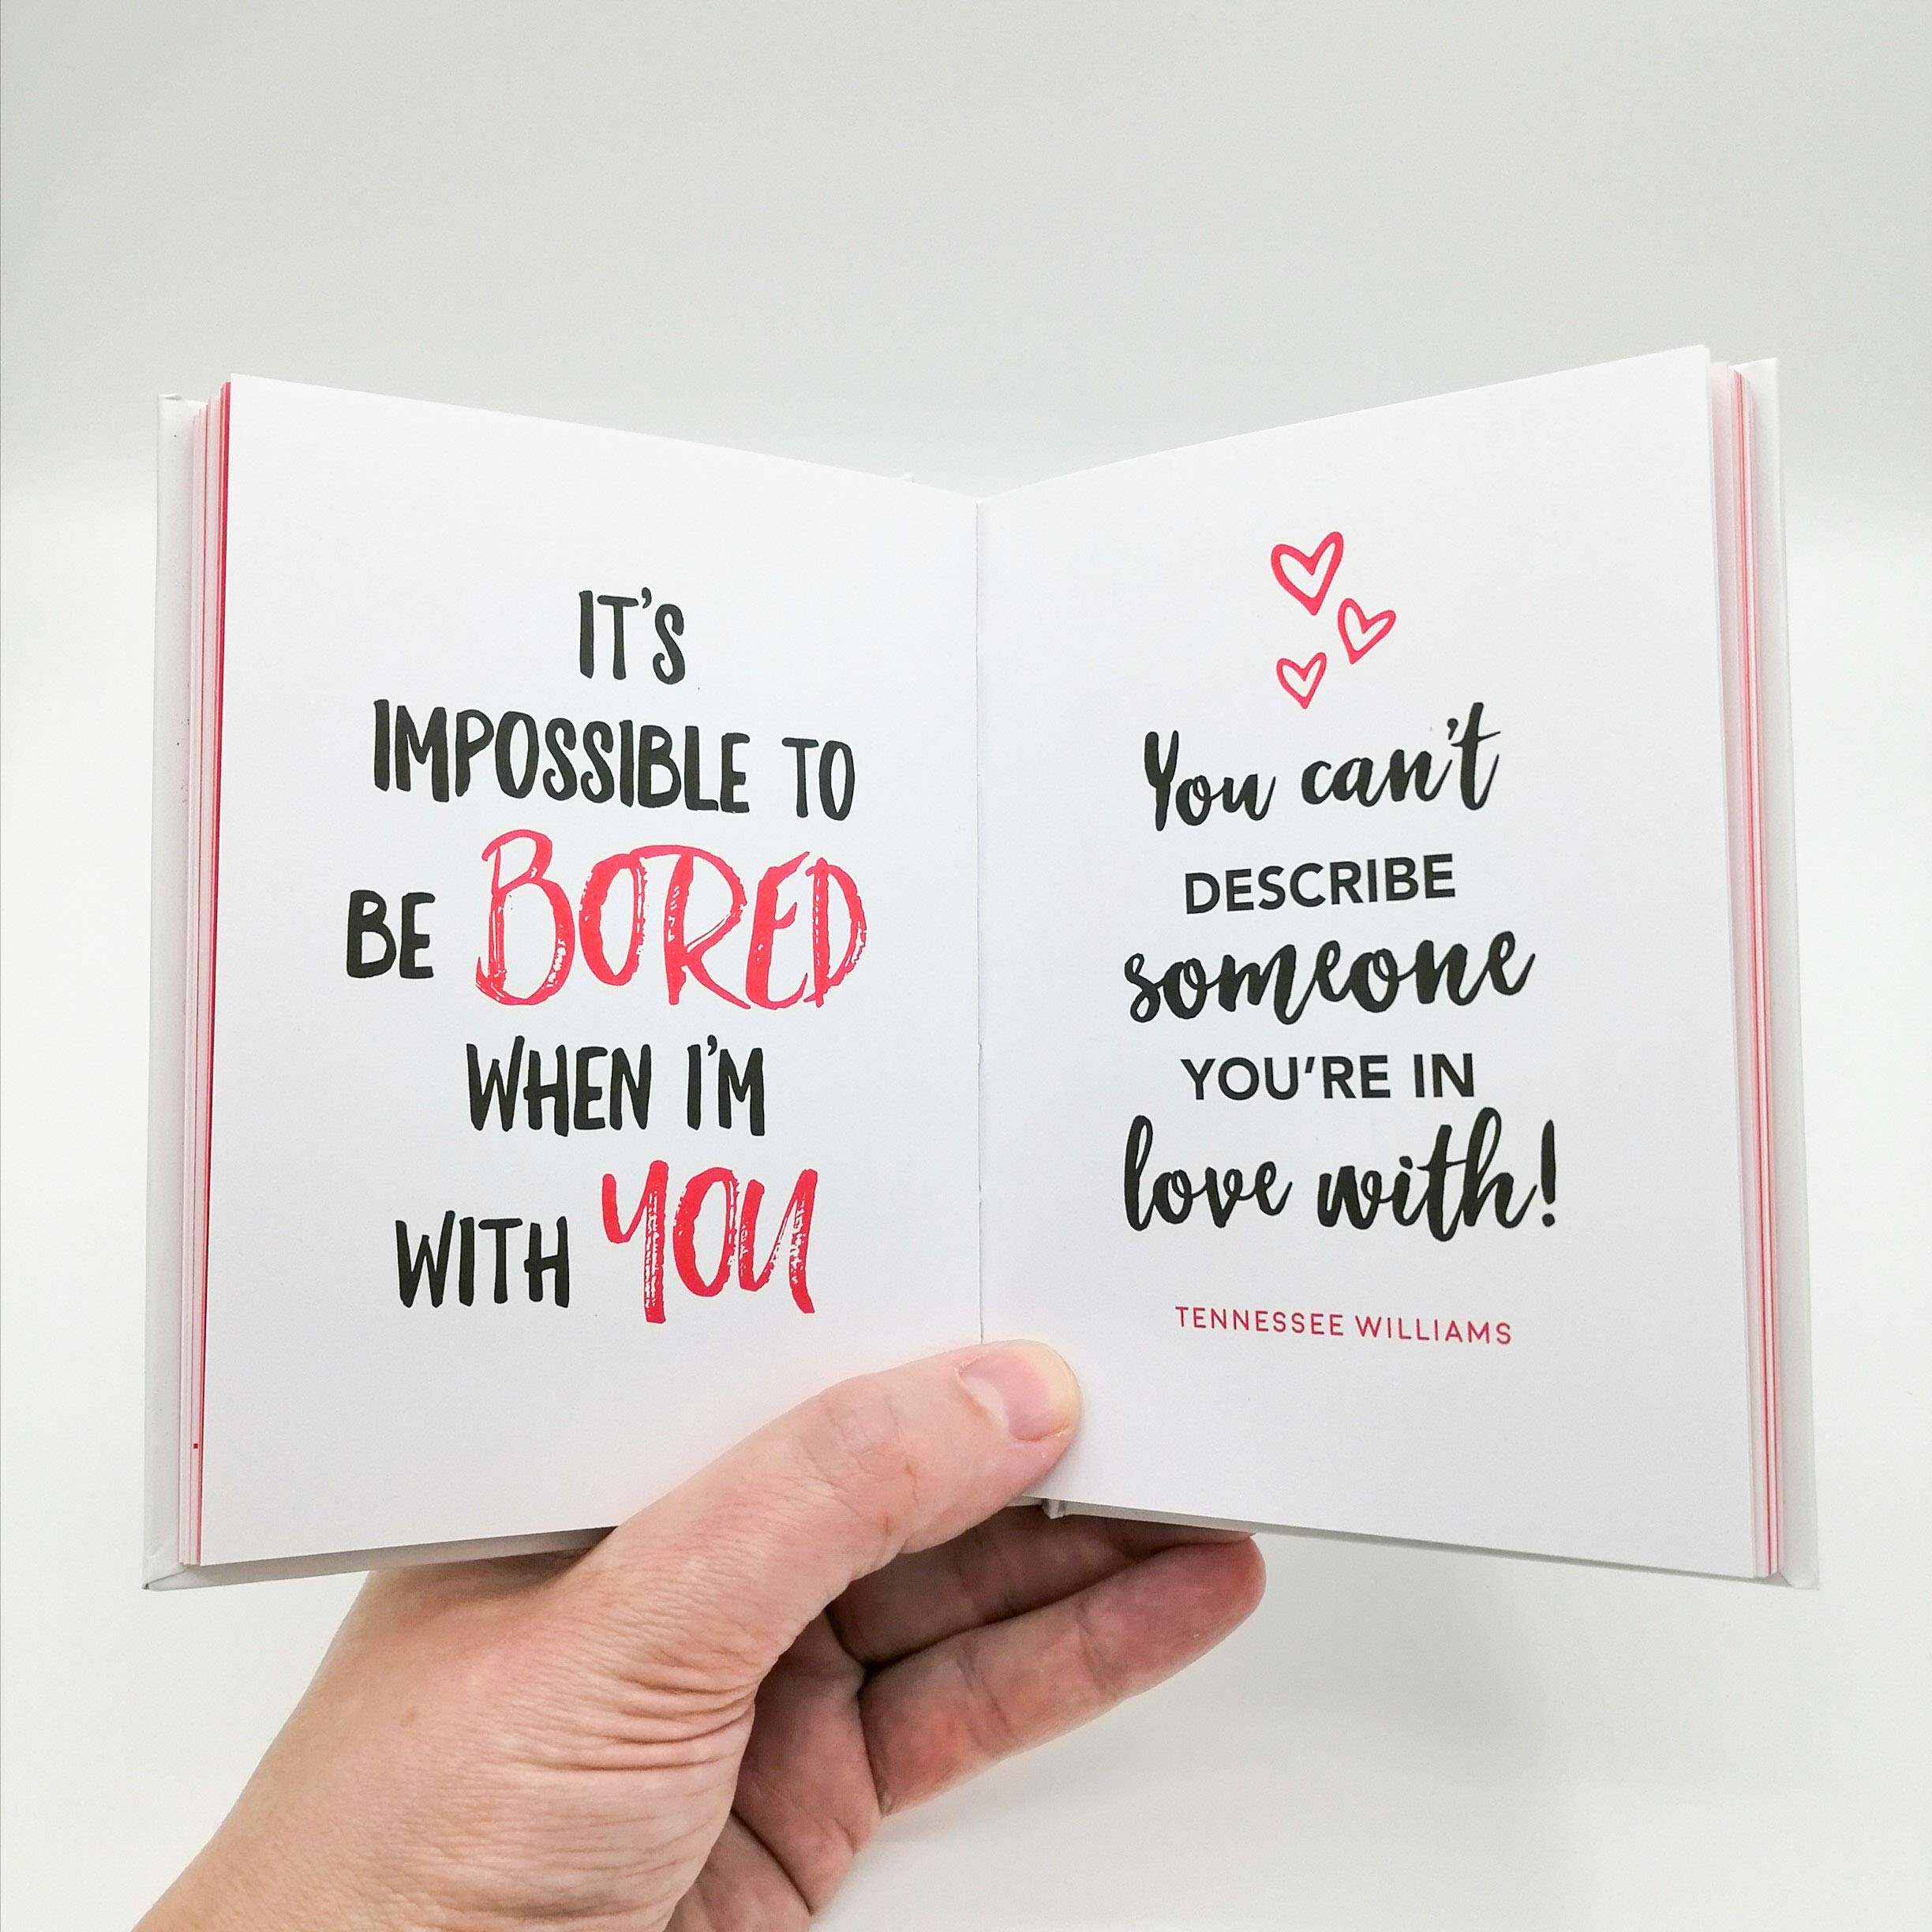 IT'S
IMPOSSIBLE TO
BE BORED
WHEN I'M
WITH YOU
You can't
DESCRIBE
someone
YOU'RE IN
love with!
TENNESSEE WILLIAMS